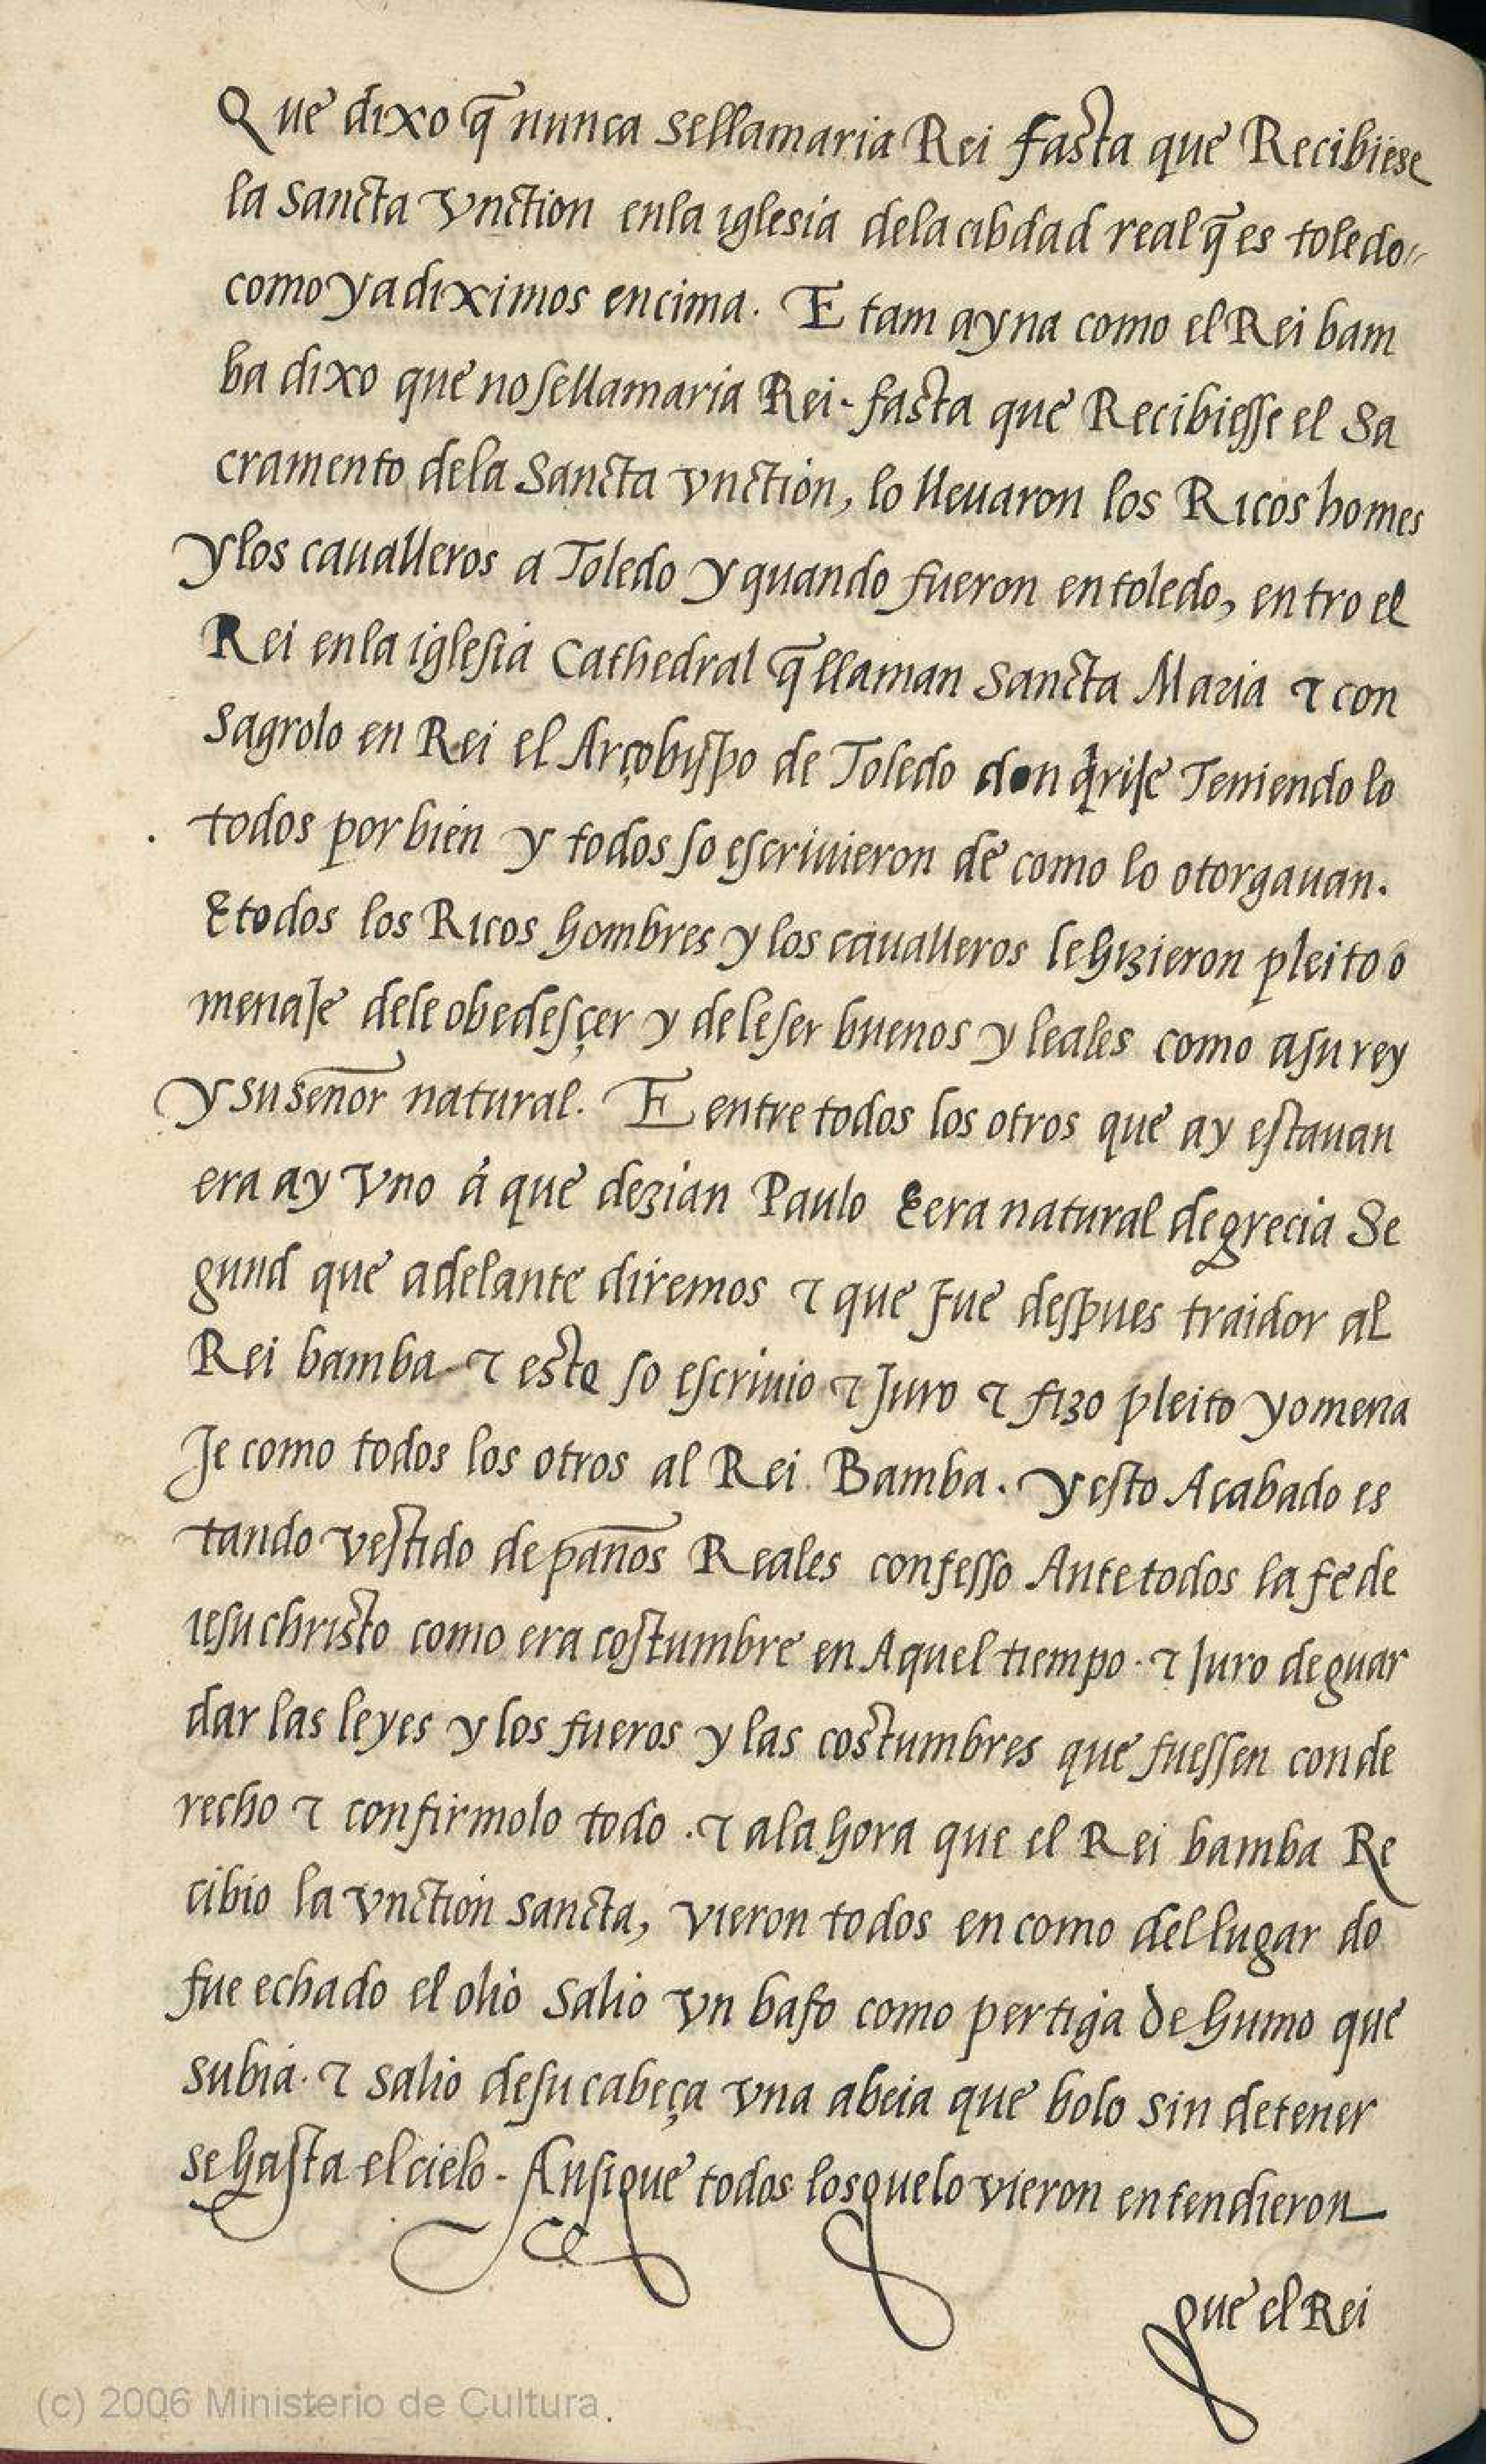 Que dixo q̃ nunca sellamaria Rei fasta que Recibiese
la sancta vnction enla iglesia dela cibdad real q̃ es toledo
como ya diximos encima. E tam ayna como el Rei bam
ba dixo que no sellamaria Rei - fasta que Recibiesse el sa
cramento dela sancta vnction, lo lleuaron los Ricos homes
y los caualleros a Toledo y quando fueron en toledo, entro el
Rei enla iglesia Cathedral q̃ llaman sancta Maria & con
sagrolo en Rei el Arçobispo de Toledo don Teniendo lo
todos por bien y todos so escriuieron de como lo otorgauan.
E todos los Ricos hombres y los caualleros le hizieron pleito o
menaje dele obedesçer y de le ser buenos y leales como asu rey
y su señor natural. E entre todos los otros que ay estauan
era ay vno á que dezian Paulo E era natural de grecia Se
gund que adelante diremos & que fue despues traidor al
Rei bamba - & este so escriuio & Juro & fizo pleito y omena
Je como todos los otros al Rei Bamba. y esto Acabado es
tando vestido de paños Reales confesso Ante todos la fe de
iesu christo como era costumbre en Aquel tiempo. & Juro de guar
dar las leyes y los fueros y las costumbres que fuessen con de
recho & confirmolo todo. & ala hora que el Rei bamba Re
cibio la vnction sancta, vieron todos en como del lugar do
fue echado el olio salio vn bafo como pertiga de humo que
subia. & salio de su cabeça vna abeia que bolo sin detener
se hasta el cielo - Ansi que todos los que lo vieron entendieron
que el Rei
(c) 2006 Ministerio de Cultura